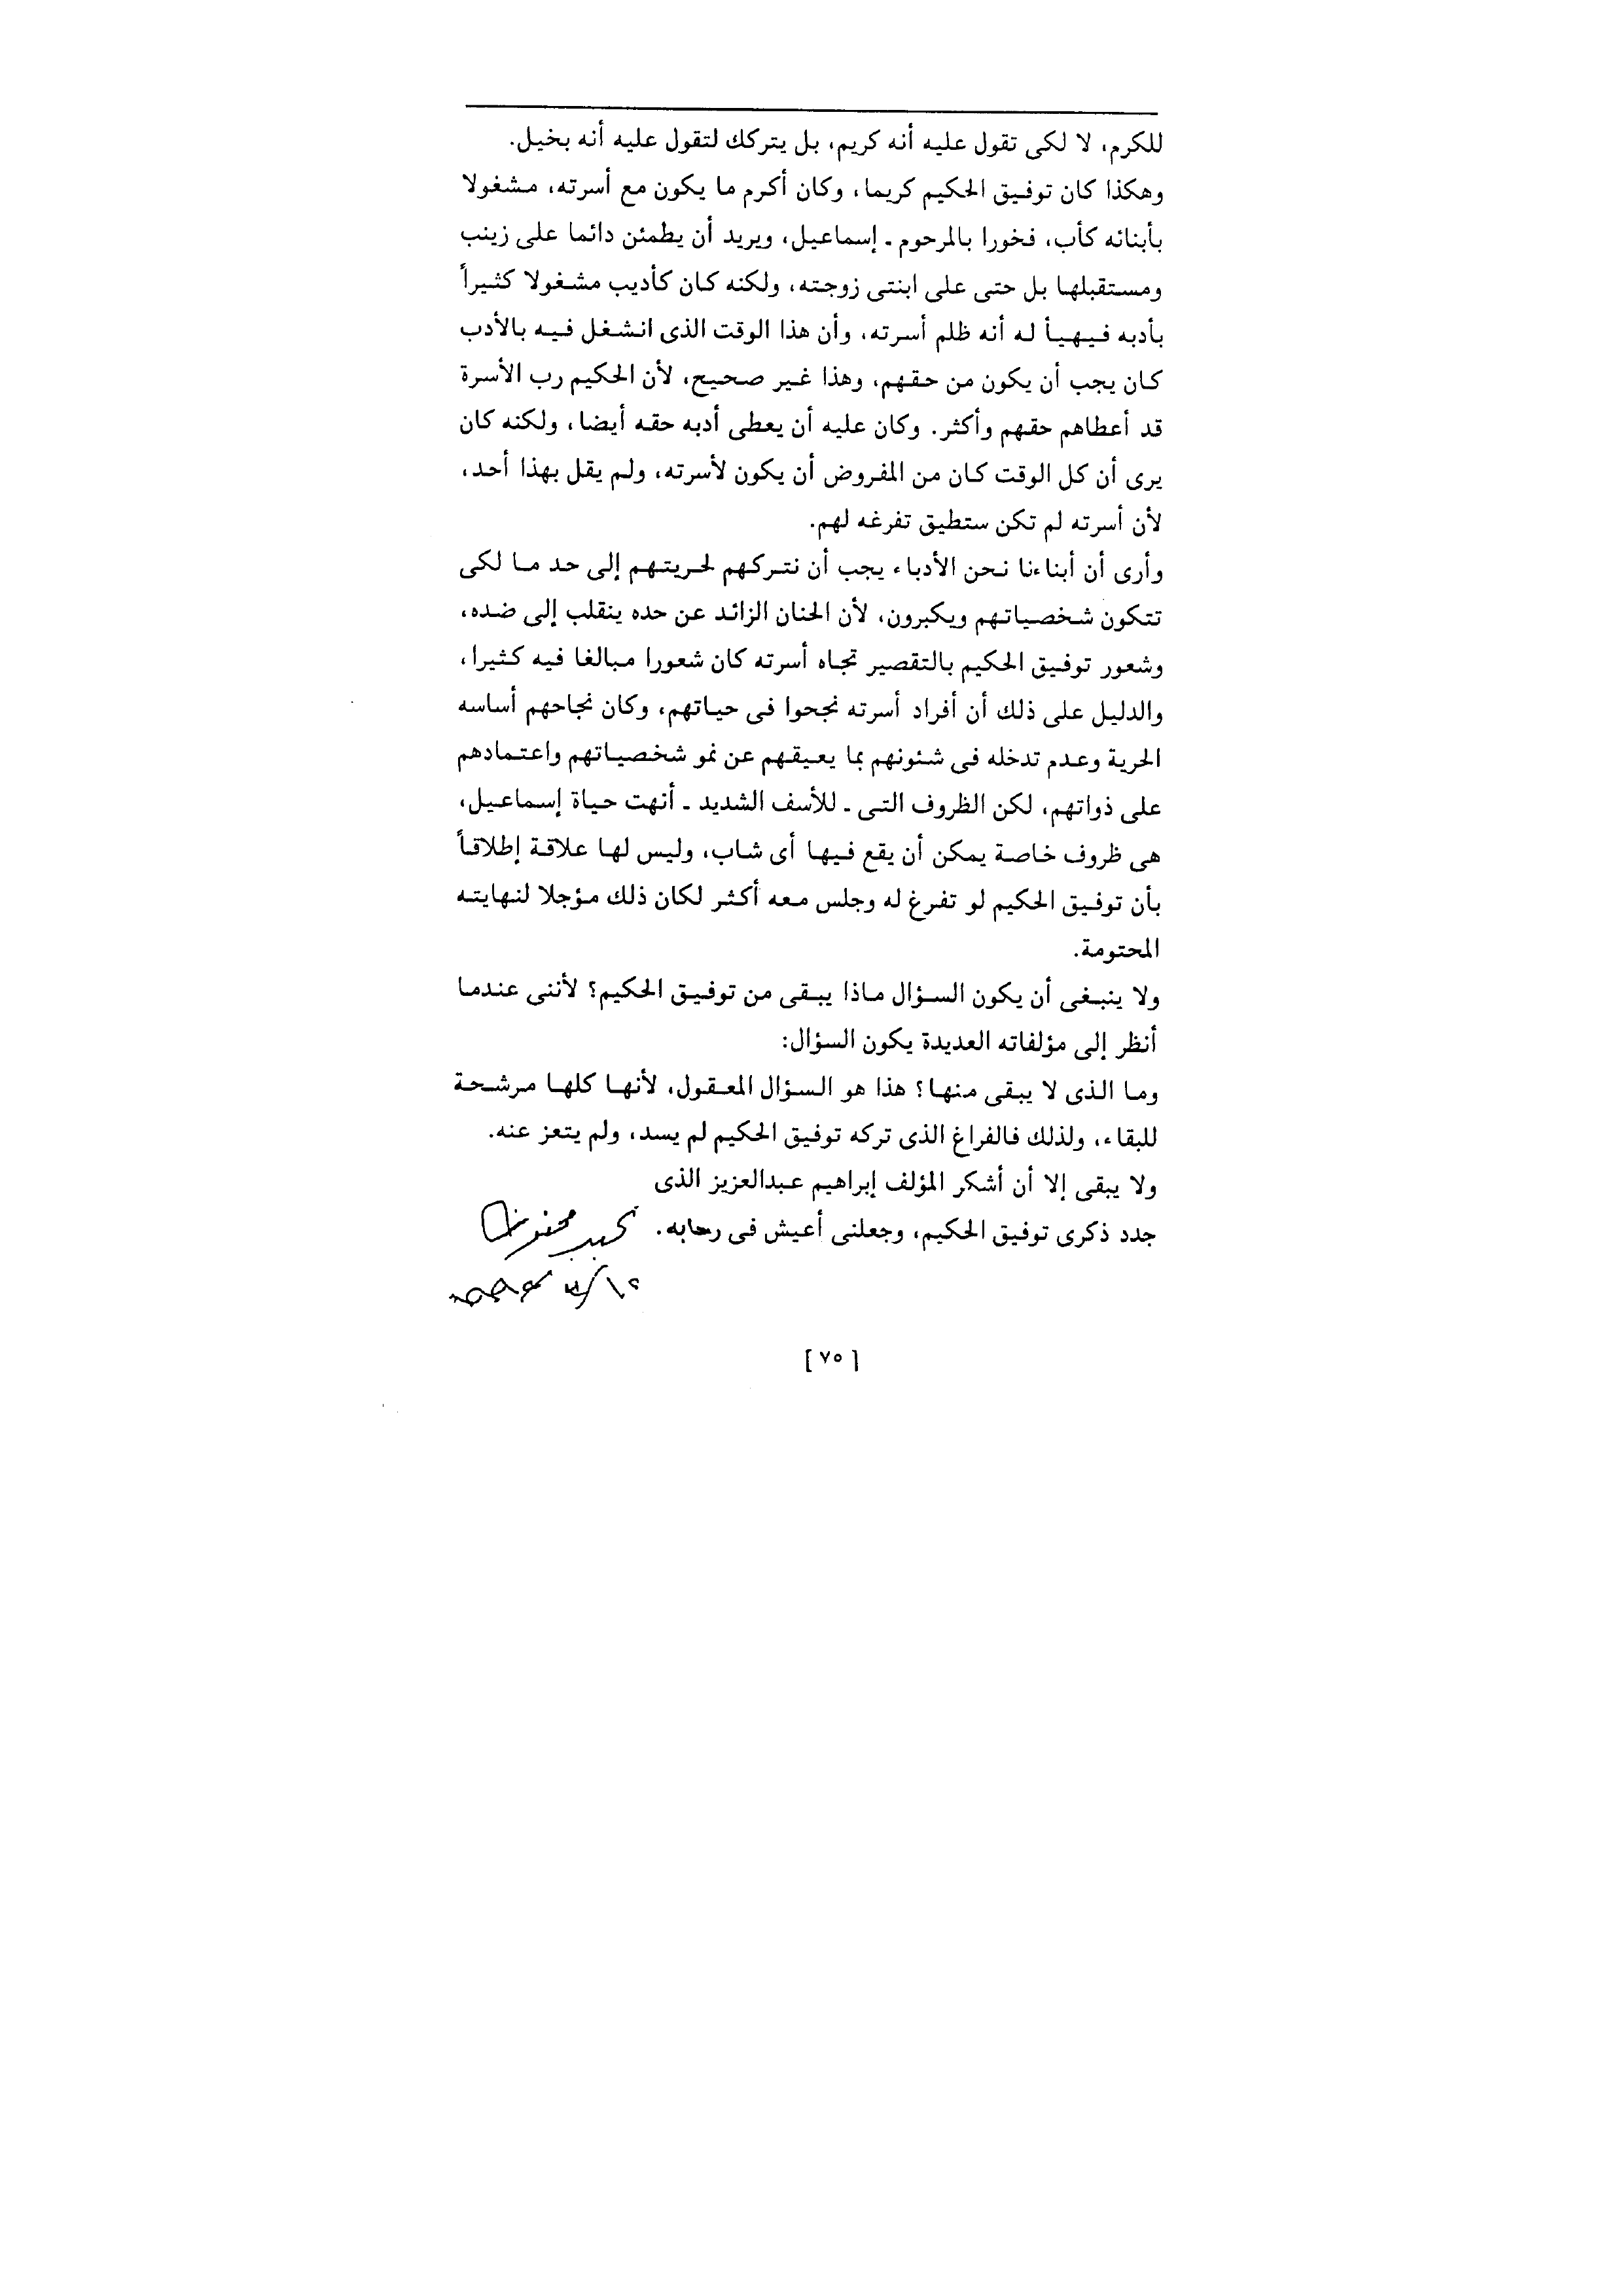 للكرم، لا لكى تقول عليه أنه كريم، بل يتركك لتقول عليه أنه بخيل.
وهكذا كان توفيق الحكيم كريما، وكان أكرم ما يكون مع أسرته، مشغولا
بأبنائه كأب، فخورا بالمرحوم ـ إسماعيل، ويريد أن يطمئن دائما على زينب
ومستقبلها بل حتى على ابنتى زوجته، ولكنه كان كأديب مشغولا كثيراً
بأدبه فيهيأ له أنه ظلم أسرته، وأن هذا الوقت الذى انشغل فيه بالأدب
كان يجب أن يكون من حقهم، وهذا غير صحيح، لأن الحكيم رب الأسرة
قد أعطاهم حقهم وأكثر. وكان عليه أن يعطى أدبه حقه أيضا، ولكنه كان
يرى أن كل الوقت كان من المفروض أن يكون لأسرته، ولم يقل بهذا أحد،
لأن أسرته لم تكن ستطيق تفرغه لهم.
وأرى أن أبناءنا نحن الأدباء يجب أن نتركهم لحريتهم إلى حد ما لكى
تتكون شخصياتهم ويكبرون، لأن الحنان الزائد عن حده ينقلب إلى ضده،
وشعور توفيق الحكيم بالتقصير تجاه أسرته كان شعورا مبالغا فيه كثيرا،
والدليل على ذلك أن أفراد أسرته نجحوا فى حياتهم، وكان نجاحهم أساسه
الحرية وعدم تدخله فى شئونهم بما يعيقهم عن نمو شخصياتهم واعتمادهم
على ذواتهم، لكن الظروف التى ـ للأسف الشديد ـ أنهت حياة إسماعيل،
هى ظروف خاصة يمكن أن يقع فيها أى شاب، وليس لها علاقة إطلاقاً
بأن توفيق الحكيم لو تفرغ له وجلس معه أكثر لكان ذلك مؤجلا لنهايته
المحتومة.
ولا ينبغى أن يكون السؤال ماذا يبقى من توفيق الحكيم؟ لأننى عندما
أنظر إلى مؤلفاته العديدة يكون السؤال:
وما الذى لا يبقى منها؟ هذا هو السؤال المعقول، لأنها كلها مرشحة
للبقاء، ولذلك فالفراغ الذى تركه توفيق الحكيم لم يسد، ولم يتعز عنه.
ولا يبقى إلا أن أشكر المؤلف إبراهيم عبدالعزيز الذى
جدد ذكرى توفيق الحكيم، وجعلنى أعيش فى رحابه. نجيب محفوظ
[٧٥]